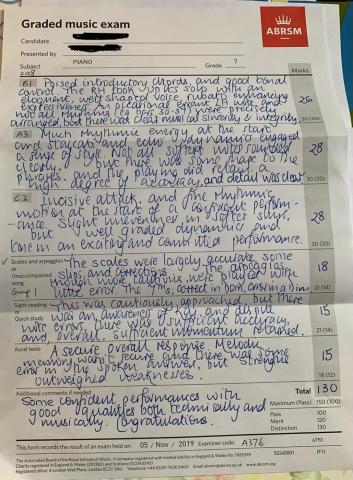 Graded music exam
ABRSM
Candidate
Presented by
Subject PIANO Grade 7
Marks
B:1 Poised introductory chords, and good band
control. The RH took up its solo with an
eloquent, well shaped voice, rubato enhancing
expressiveness. An occasional errant LH note, and
not all rhythms (eg bars 30-34) were precisely
arranged, but there was clear musical sincerity & integrity.
26
30 (20)
A3 Much rhythmic energy, at the start
and staccati and echo dynamics engaged
a sense of style. Not all softest notes sounded
clearly, but there was some shape to the
phrases, and the playing did retain a
high degree of accuracy, and detail was clear.
28
30 (20)
C2 Incisive attack, and fine rhythmic
motion at the start of a confident perform-
ance. Slight unevenness in softer
but well graded dynamics and
tone in an exciting and committed performance.
28
30 (20)
Scales and arpeggios
or
Unaccompanied
song
Group 1
The scales were largely accurate, some
slips and corrections. The arpeggios
though more cautious, were played with
little error. The 7ths; correct in
18
21 (14)
Sight-reading
Quick study
This was cautiously approached, but there
was an awareness of key, and despite
note errors, there was sufficient accuracy,
and, overall, sufficient momentum retained.
15
21 (14)
Aural tests
A secure overall response. Melodic
memory wasn't secure and there was some
error in the spoken answer, but strengths
outweighed weaknesses.
15
18 (12)
Additional comments if needed
Total 130
Some confident performances with
good qualities both technically and
musically. Congratulations.
Maximum (Pass) 150 (100)
Pass 100
Merit 120
Distinction 130
This form records the result of an exam held on: 05 / Nov / 2019 Examiner code: A376
The Associated Board of the Royal Schools of Music. A company registered in England & Wales
Charity registered in England & Wales
Registered office: 4 London Wall Place, London EC2Y 5AU
www.abrsm.org